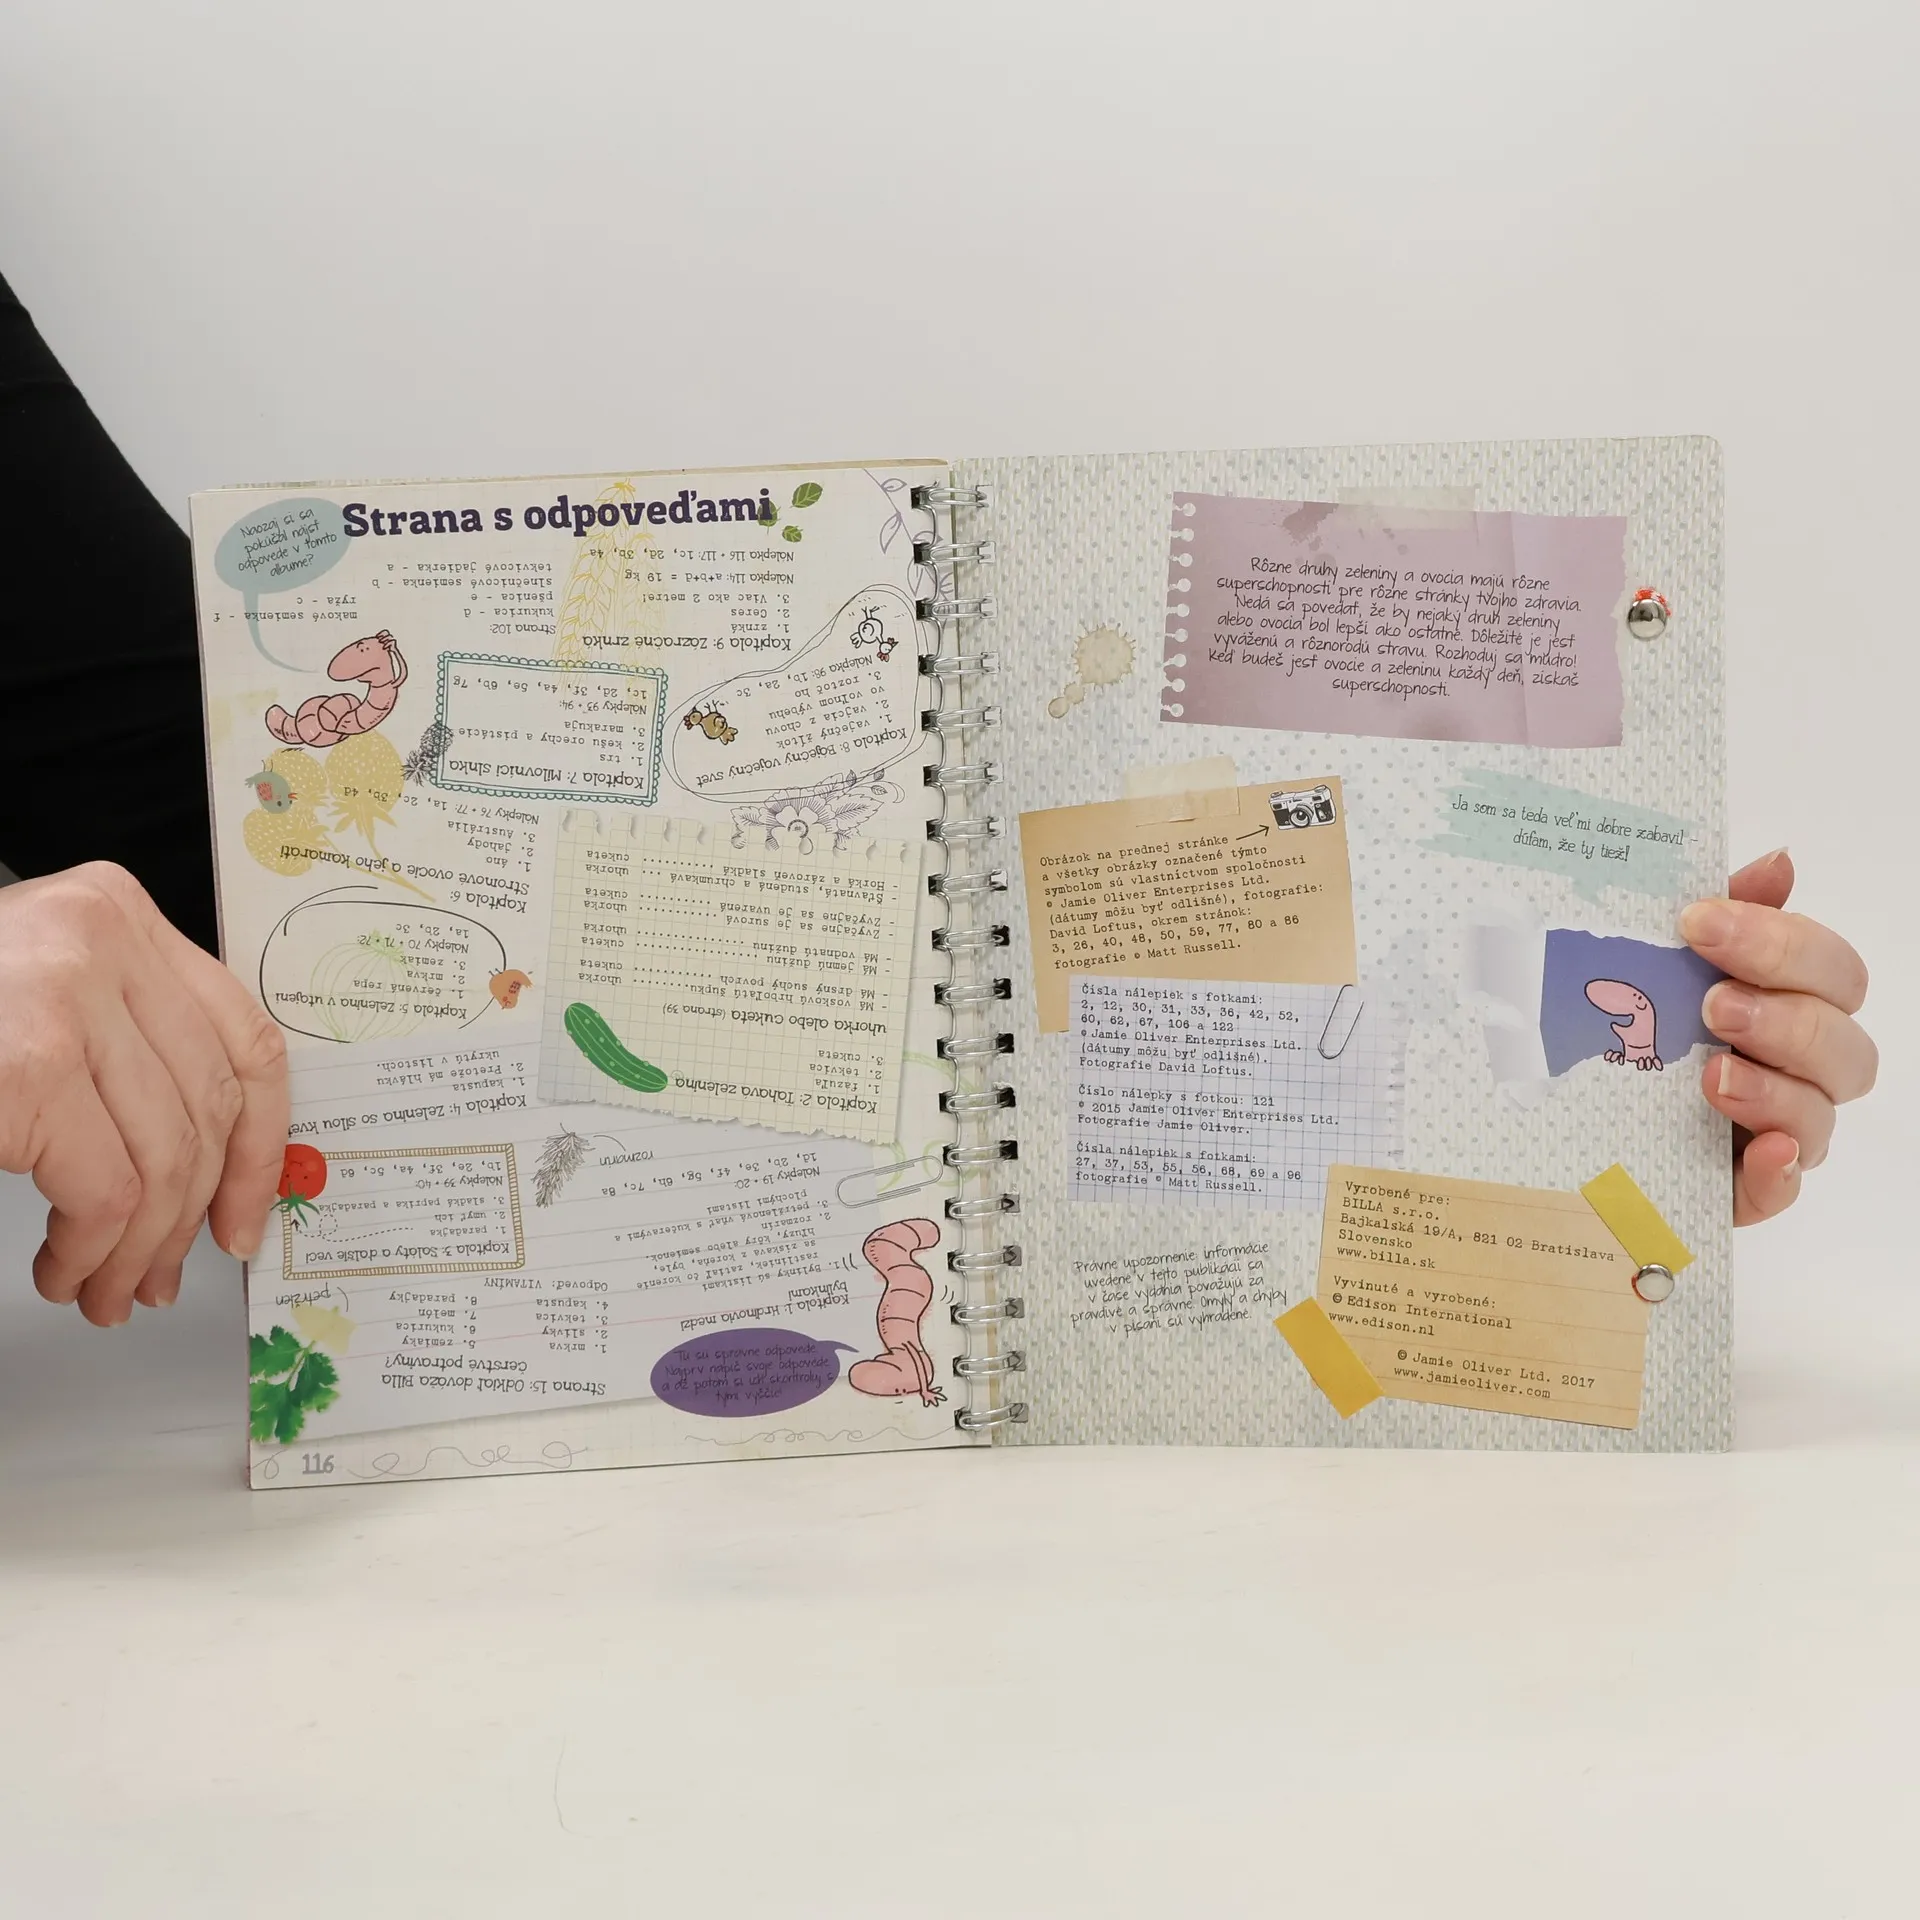 Strana s odpoveďami
Naozaj si sa
pokúšal nájsť
odpovede v tomto
albume?
Tu sú správne odpovede.
Najprv napíš svoje odpovede
a až potom si ich skontroluj s
tými vyššie!
Strana 15: Odkiaľ dováža Billa
čerstvé potraviny?
1. mrkva
2. slivky
3. tekvica
4. kapusta
5. zemiaky
6. kukurica
7. melón
8. paradajky
Odpoveď: VITAMÍNY
petržlen
Kapitola 1: Hrdinovia medzi
bylinkami
1. Bylinky sú lístkami
rastliniek, zatiaľ čo korenie
sa získava z koreňa, byle,
hľuzy, kôry alebo semienok.
2. rozmarín
3. petržlenová vňať s kučeravými a
plochými listami
Nálepky 19 + 20:
1d, 2b, 3e, 4f, 5g, 6h, 7c, 8a
rozmarín
Kapitola 2: Ťahavá zelenina
1. fazuľa
2. tekvica
3. cuketa
uhorka alebo cuketa (strana 39)
- Má voskovú hrboľatú šupku. uhorka
- Má drsný suchý povrch cuketa
- Má jemnú dužinu cuketa
- Má vodnatú dužinu uhorka
- Zvyčajne sa je surová uhorka
- Zvyčajne sa je uvarená cuketa
- Šťavnatá, studená a chrumkavá ... uhorka
- Horká a zároveň sladká cuketa
Kapitola 3: Šaláty a ďalšie veci
1. paradajka
2. umyť ich
3. sladká paprika a paradajka
Nálepky 39 + 40:
1b, 2e, 3f, 4a, 5c, 6d
Kapitola 4: Zelenina so silou
1. kapusta
2. Pretože má hlávku
ukrytú v listoch.
Kapitola 5: Zelenina v utajení
1. červená repa
2. mrkva
3. zemiak
Nálepky 70 + 71 + 72:
1a, 2b, 3c
Kapitola 6:
Stromové ovocie a jeho kamaráti
1. áno
2. jahody
3. Austrália
Nálepky 76 + 77: 1a, 2c, 3b, 4d
Kapitola 7: Milovníci slnka
1. trs
2. kešu orechy a pistácie
3. marakuja
Nálepky 93 + 94:
1c, 2d, 3f, 4a, 5e, 6b, 7g
Kapitola 8: Báječný vaječný svet
1. vaječný žĺtok
2. vajcia z chovu
vo voľnom výbehu
3. roztoč ho
Nálepka 98: 1b, 2a, 3c
Kapitola 9: Zázračné zrnká
1. zrnká
2. Ceres
3. Viac ako 2 metre!
Nálepka 114: a+b+d = 19 kg
Nálepka 116 + 117: 1c, 2d, 3b, 4a
Strana 102:
kukurica - d
pšenica - e
slnečnicové semienka - b
tekvicové jadierka - a
makové semienka - f
ryža - c
116
Rôzne druhy zeleniny a ovocia majú rôzne
superschopnosti pre rôzne stránky tvojho zdravia.
Nedá sa povedať, že by nejaký druh zeleniny
alebo ovocia bol lepší ako ostatné. Dôležité je jesť
vyváženú a rôznorodú stravu. Rozhoduj sa múdro!
Keď budeš jesť ovocie a zeleninu každý deň, získaš
superschopnosti.
Ja som sa teda veľmi dobre zabavil –
dúfam, že ty tiež!
Obrázok na prednej stránke
a všetky obrázky označené týmto
symbolom sú vlastníctvom spoločnosti
© Jamie Oliver Enterprises Ltd.
(dátumy môžu byť odlišné), fotografie:
David Loftus, okrem stránok:
3, 26, 40, 48, 50, 59, 77, 80 a 86
fotografie © Matt Russell.
Čísla nálepiek s fotkami:
2, 12, 30, 31, 33, 36, 42, 52,
60, 62, 67, 106 a 122
© Jamie Oliver Enterprises Ltd.
(dátumy môžu byť odlišné).
Fotografie David Loftus.
Číslo nálepky s fotkou: 121
© 2015 Jamie Oliver Enterprises Ltd.
Fotografie Jamie Oliver.
Čísla nálepiek s fotkami:
27, 37, 53, 55, 56, 68, 69 a 96
fotografie © Matt Russell.
Právne upozornenie: informácie
uvedené v tejto publikácii sa
v čase vydania považujú za
pravdivé a správne. Omyly a chyby
v písaní sú vyhradené.
Vyrobené pre:
BILLA s.r.o.
Bajkalská 19/A, 821 02 Bratislava
Slovensko
www.billa.sk
Vyvinuté a vyrobené:
© Edison International
www.edison.nl
© Jamie Oliver Ltd. 2017
www.jamieoliver.com